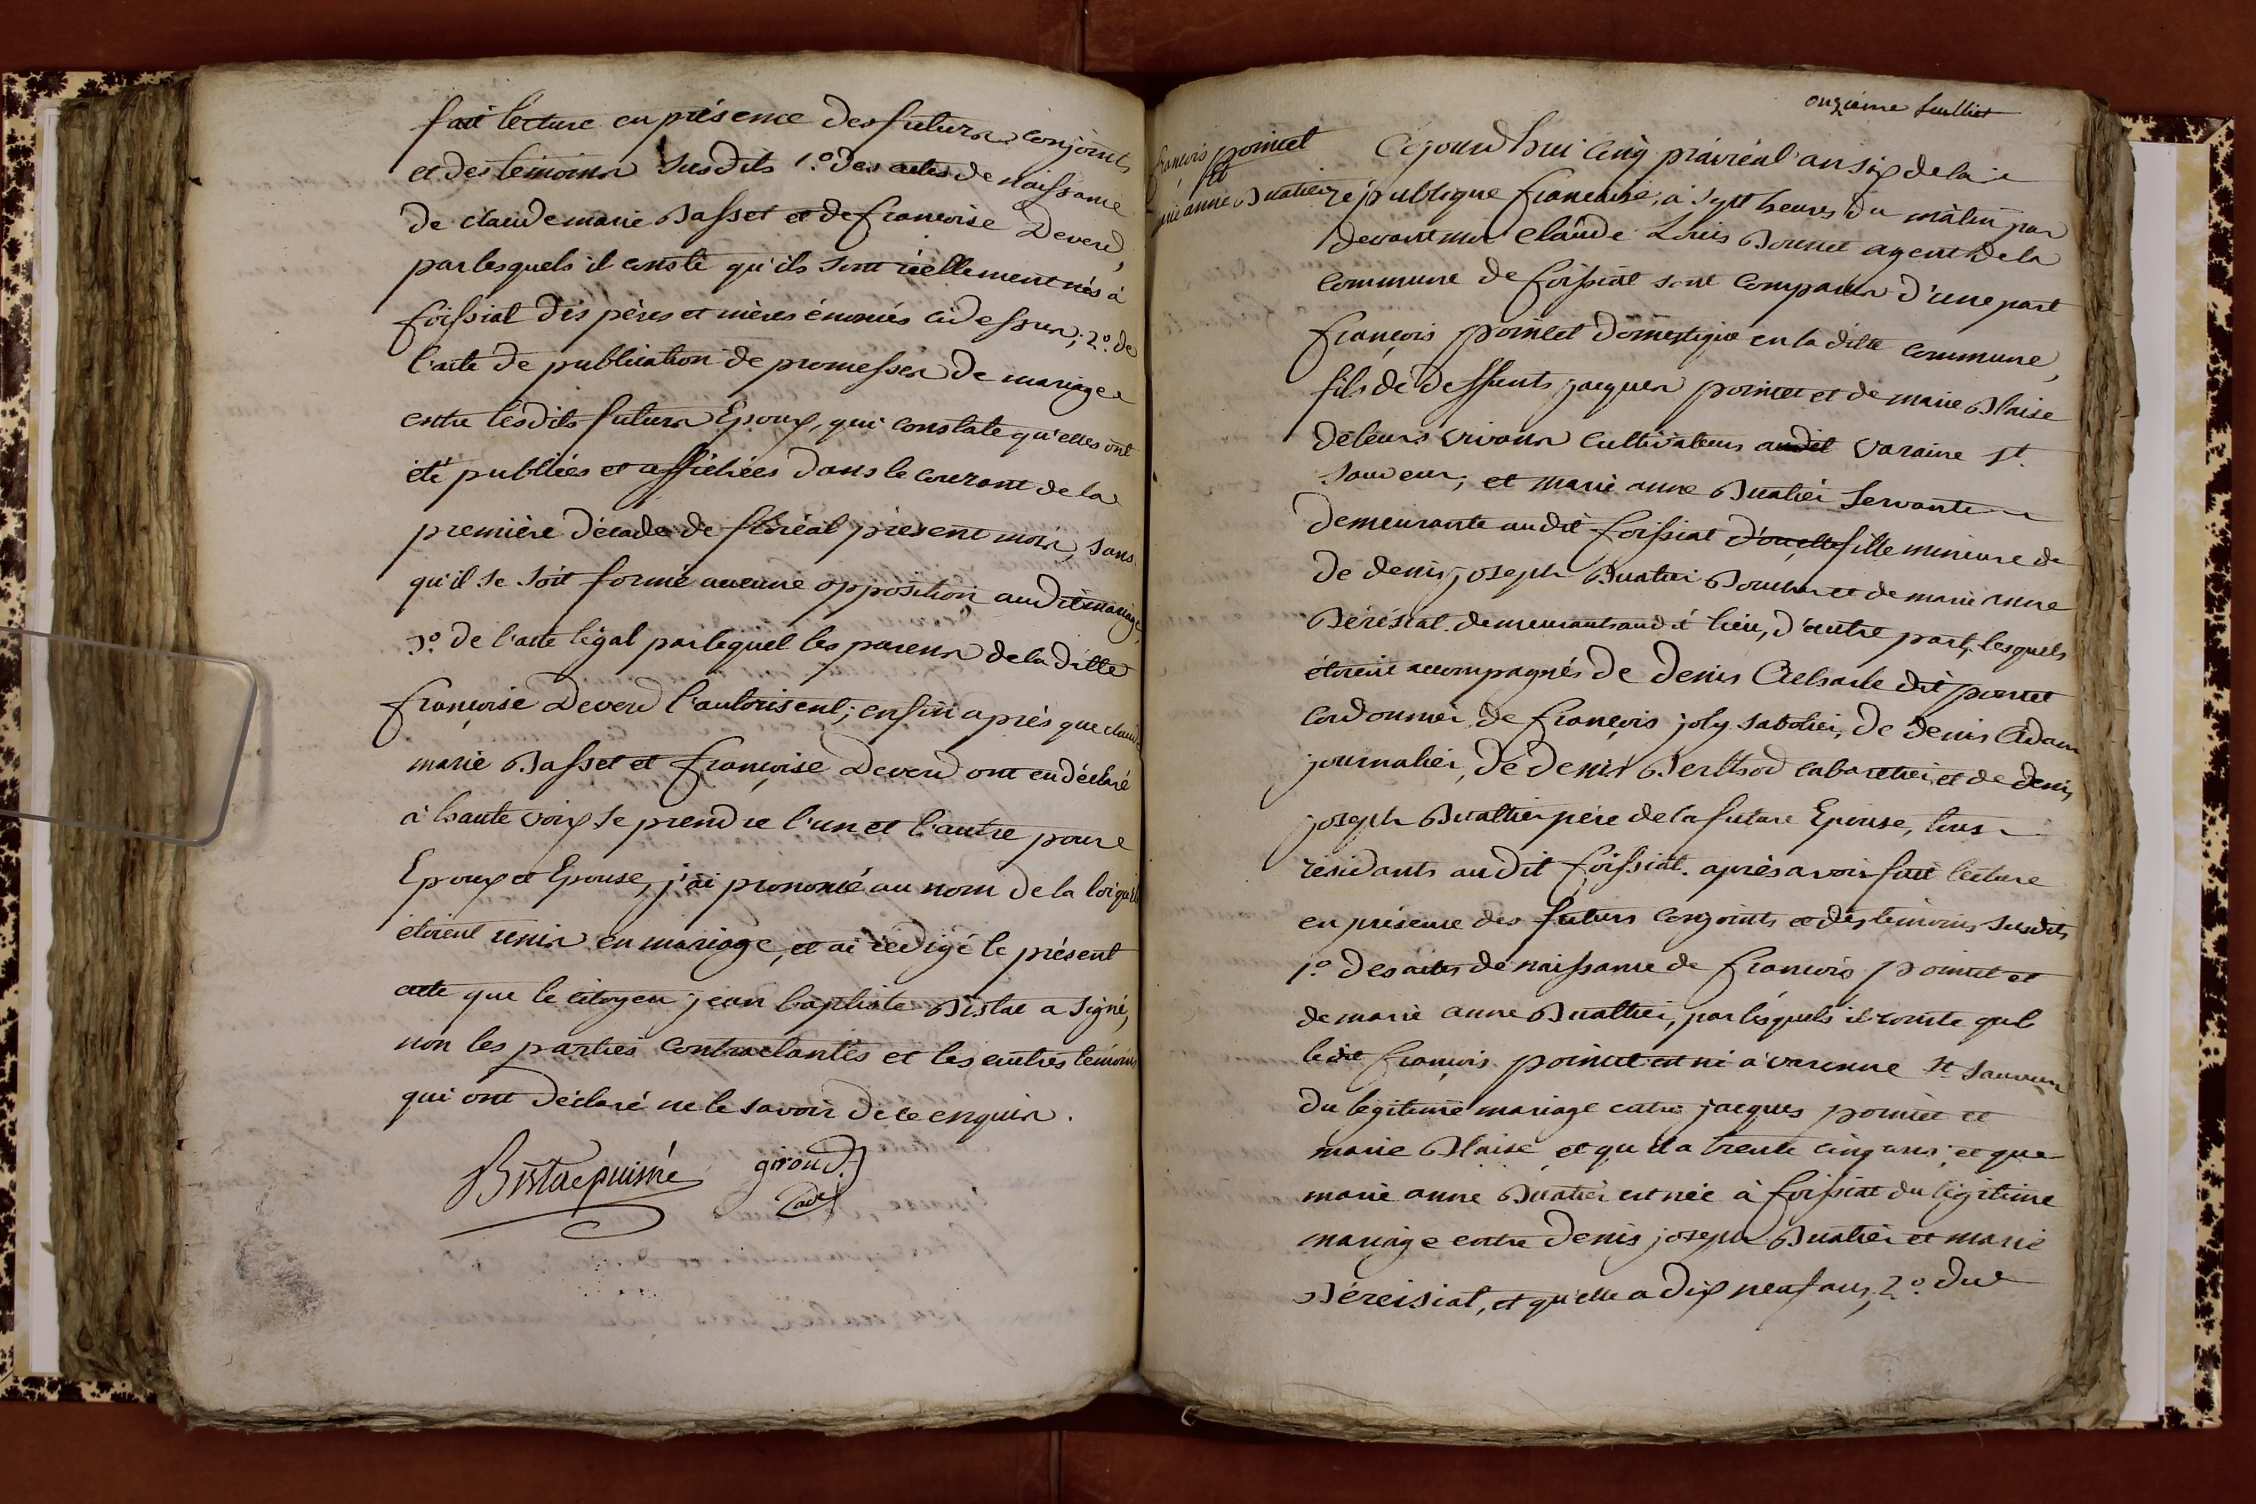 fait lecture en présence des futurs conjoints
et des témoins susdits 1.° des actes de naissance
de claude marie Basset et de francoise Deverd,
par lesquels il conste qu'ils sont réellement nés à
foissiat des pères et mères énoncés cidessus; 2.° de
l'acte de publication de promesses de mariage
entre lesdits futurs Epoux, qui constate qu'elles ont
été publiées et affichées dans le courant de la
première décade de floréal présent mois, sans
qu'il se soit formé aucune opposition audit mariage
3.° de l'acte légal par lequel les parens de la ditte
françoise Deverd l'autorisent; enfin après que claude
marie Basset et françoise Deverd ont eu déclaré
à haute voix se prendre l'un et l'autre pour
Epoux et Epouse, j'ai prononcé au nom de la loi qu'ils
étoient unis en mariage, et ai rédigé le présent
acte que le citoyen jean baptiste Bistac a signé,
non les parties contractantes et les autres témoins
qui ont déclaré ne le savoir de ce enquis.
Bistac puiné giroud
onzième feuillet
françois poincet
et
marie anne Buatier
Cejourd'hui cinq prairéal an six de la
république francaise, à sept heures du matin par
devant moi Claude Louis Bonnet agent de la
commune de foissiat sont comparus d'une part
françois poincet domestique en la ditte commune,
fils de deffunts jacques poincet et de marie Blaise
de leurs vivans cultivateurs audit varaine St.
sauveur; et marie anne Buatier servante
demeurante audit foissiat d'ou elle fille mineure de
de denis joseph Buatier et de marie anne
Béréziat demeurants audit lieu, d'autre part, lesquels
étoient accompagnés de denis dit
cordonnier, de françois joly sabotier, de denis Adam
journalier, de denis Berthod cabaretier et de denis
joseph Buattier père de la future Epouse, tous
résidants audit foissiat. après avoir fait lecture
en présence des futurs conjoints et des témoins susdits
1.° des actes de naissance de francois poincet et
de marie anne Buattier, par lesquels il conste que
ledit françois poincet est né à varenne St sauveur
du légitime mariage entre jacques poincet et
marie Blaise et qu'il a trente cinq ans; et que
marie anne Buatier est née à foissiat du légitime
mariage entre denis joseph Buatier et marie
Béreisiat, et qu'elle a dix neuf ans, 2.° de